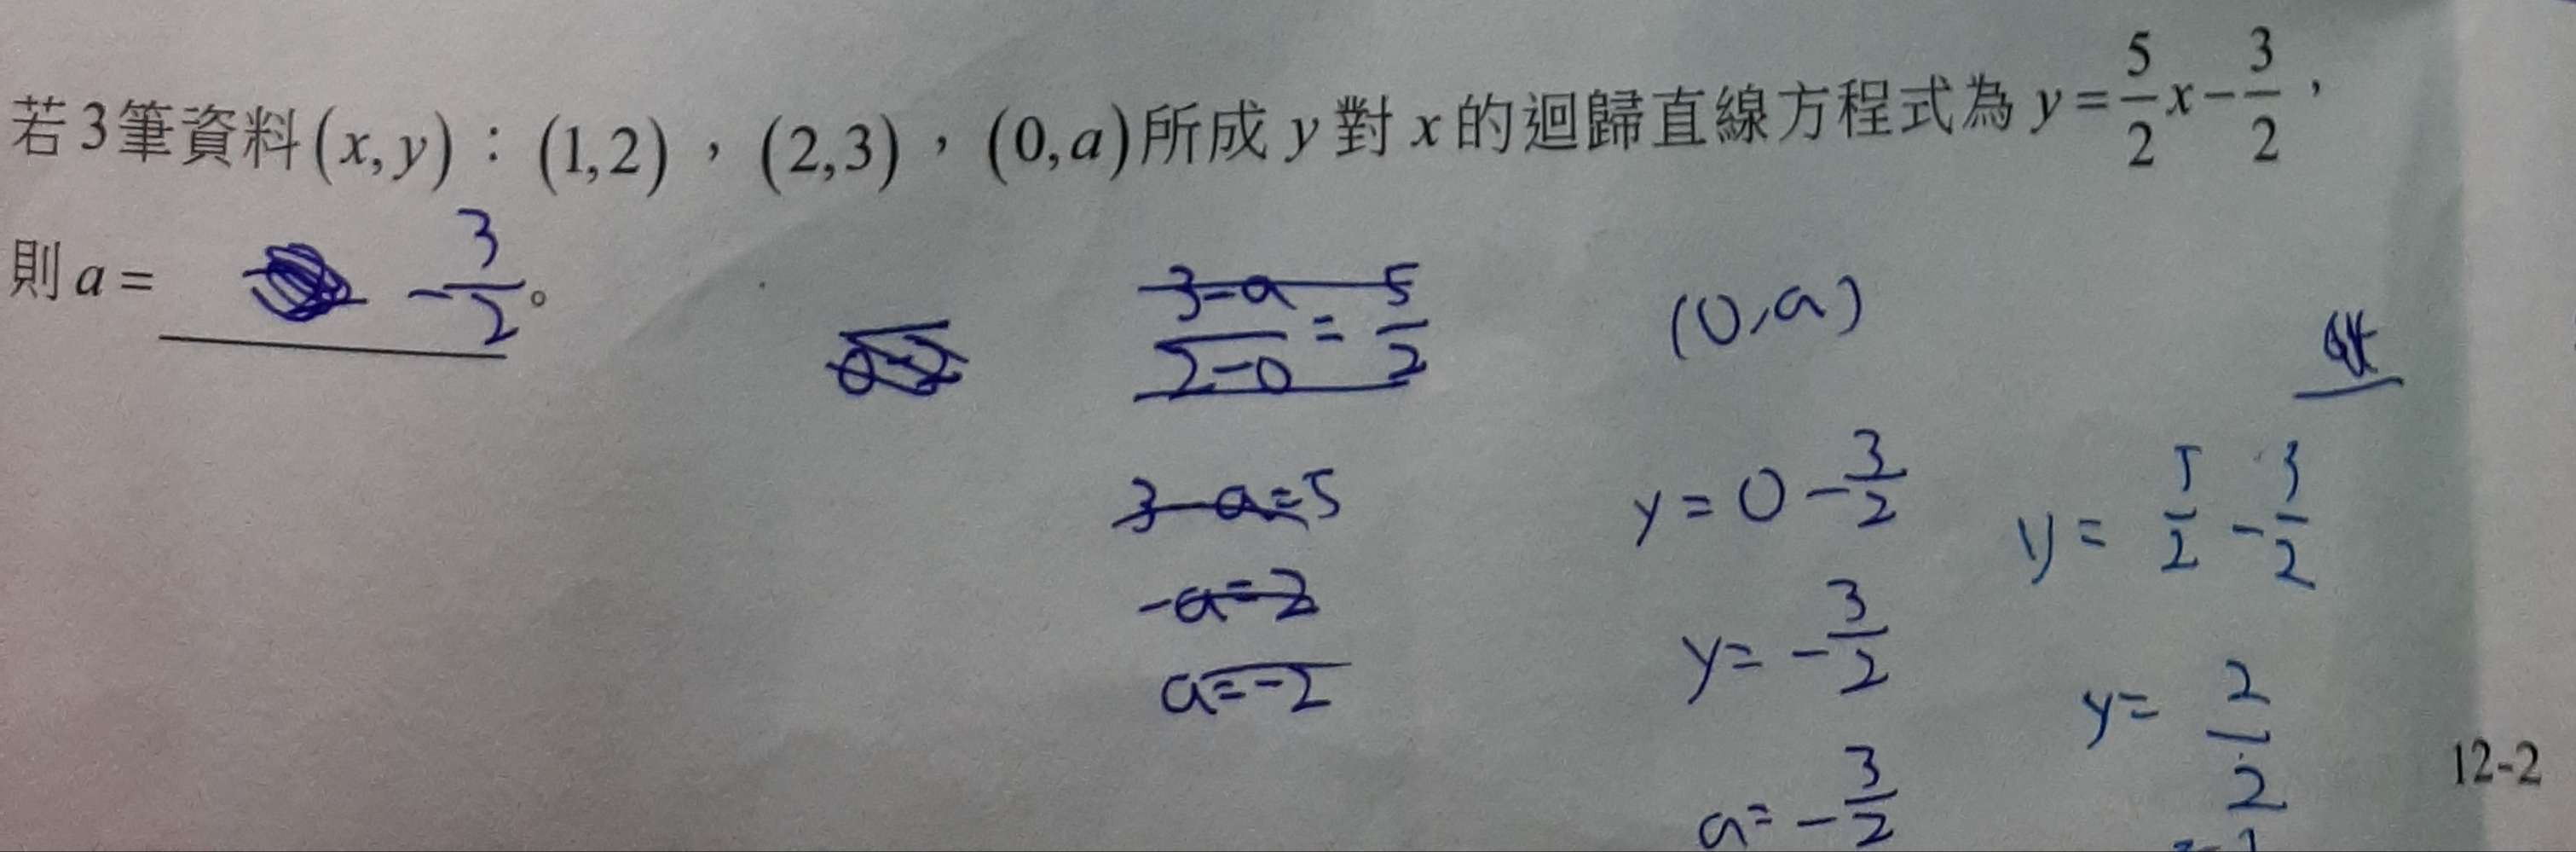 若3筆資料(x,y)：(1,2)，(2,3)，(0,a)所成 y 對 x 的迴歸直線方程式為 y=5/2x-3/2，
則 a = -3/2。
(3-a)/(2-0) = 5/2
3-a=5
-a=2
a=-2
(0,a)
y = 0 - 3/2
y = -3/2
a = -3/2
y = 5/2 - 3/2
y = 2/2
12-2